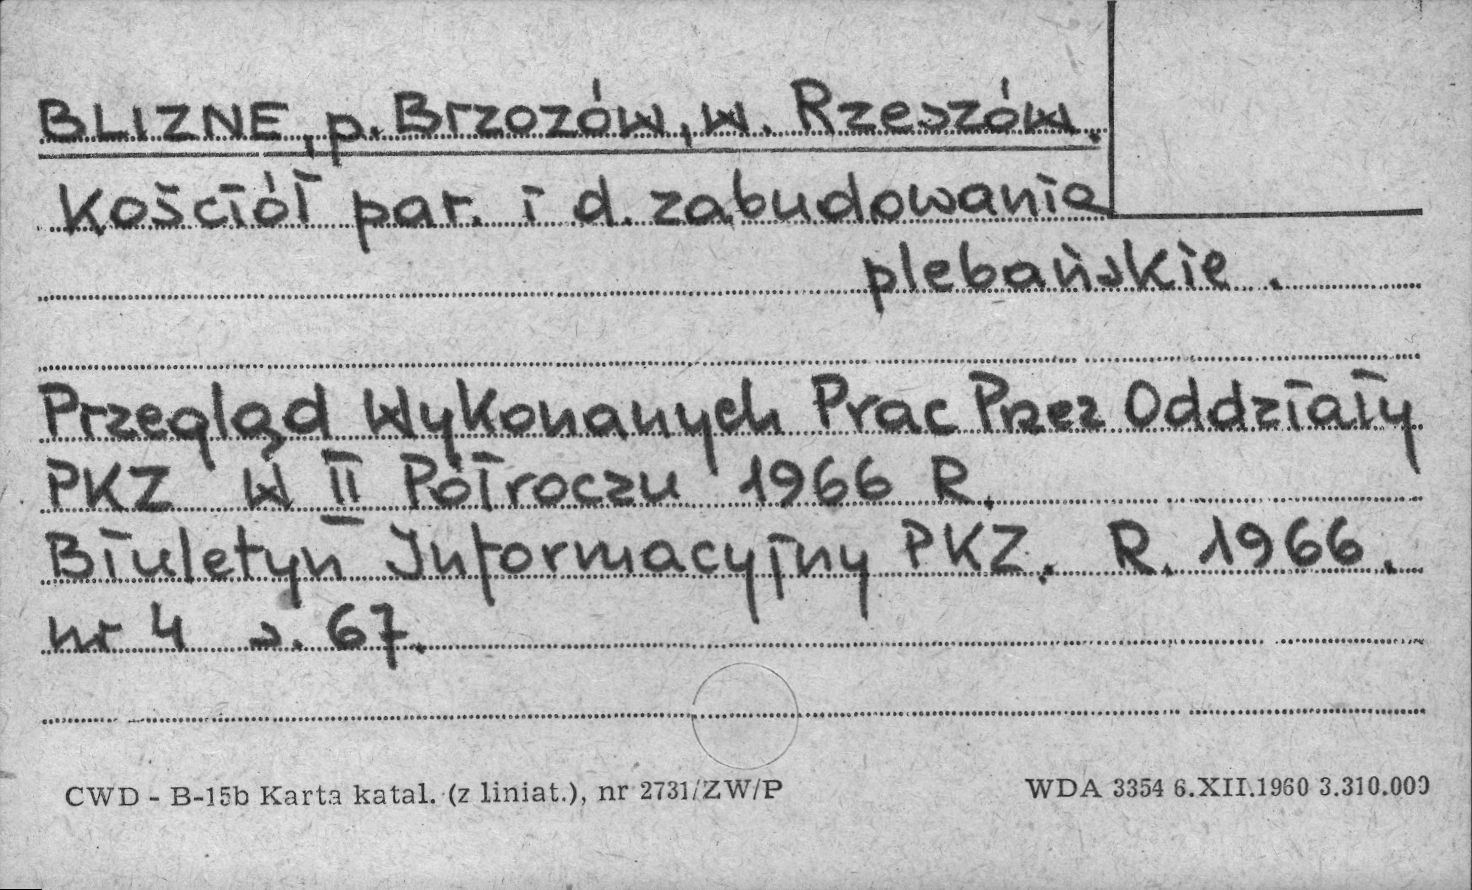 BLIZNE, p. Brzozów, w. Rzeszów.
Kościół par. i d. zabudowania
plebańskie.
Przegląd Wykonanych Prac Przez Oddziały
PKZ W II Półroczu 1966 R.
Biuletyn Informacyjny PKZ. R. 1966.
nr 4 s. 67.
CWD - B-15b Karta katal. (z liniat.), nr 2731/ZW/P WDA 3354 6.XII.1960 3.310.000